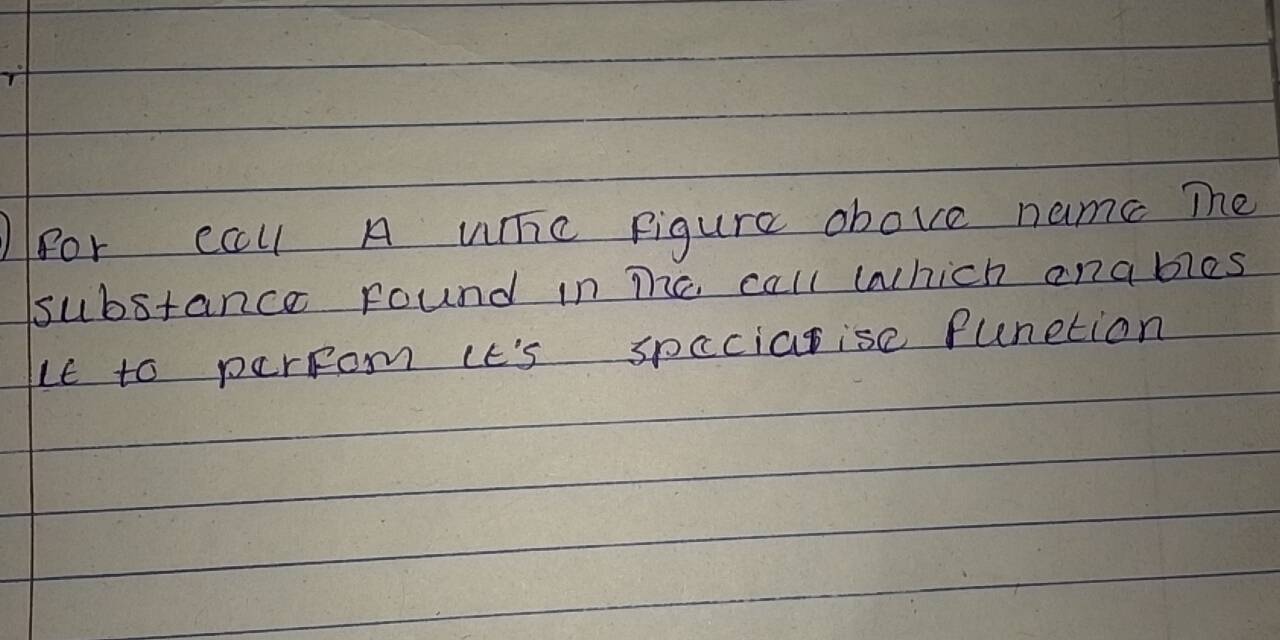 For cell A in the figure above name the
substance found in the cell which enables
it to perfom it's specialise function